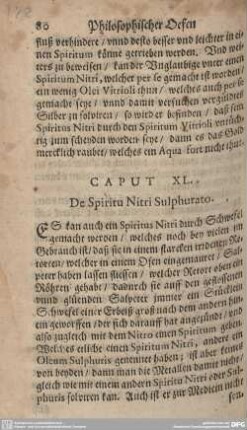 80 Philosophischer Oefen
fluß verhindere / vnnd desto besser vnd leichter in ei-
nen Spiritum könne getrieben werden. Vnd wei-
ters zu beweisen / kan der Vnglaubige vnter einen
Spiritum Nitri, welcher per se gemacht ist worden /
ein wenig Olei Vitrioli thun / welches auch per se
gemacht seye / vnnd damit versuchen
Silber zu solviren / so wird er befinden / daß sein
Spiritus Nitri durch den Spiritum Vitrioli
zig zum schenden worden seye / dann es das Gold
mercklich raubet / welches ein Aqua fort nicht thut.
CAPUT XL.
De Spiritu Nitri Sulphurato.
ES kan auch ein Spiritus Nitri durch Schwefel
gemacht werden / welches noch bey vielen im
Gebrauch ist / daß sie in einem starcken irrdenen Re-
torten / welcher in einem Ofen eingemauret / Sal-
peter haben lassen fliessen / welcher Retort oben ein
Röhren gehabt / dadurch sie auff den gestossenen
vnnd glüenden Salpeter immer ein Stücklein
Schwefel einer Erbeiß groß nach dem andern hin-
ein geworffen / der sich darauff hat angezündet / vnd
also zugleich mit dem Nitro einen Spiritum geben /
Welches etliche einen Spiritum Nitri, andere ein
Oleum Sulphuris genennet haben; ist aber keines
von beyden / dann man die Metallen damit nicht /
gleich wie mit einem andern Spiritu Nitri oder Sul-
phuris solviren kan. Auch ist er zur Medicin nicht
son-